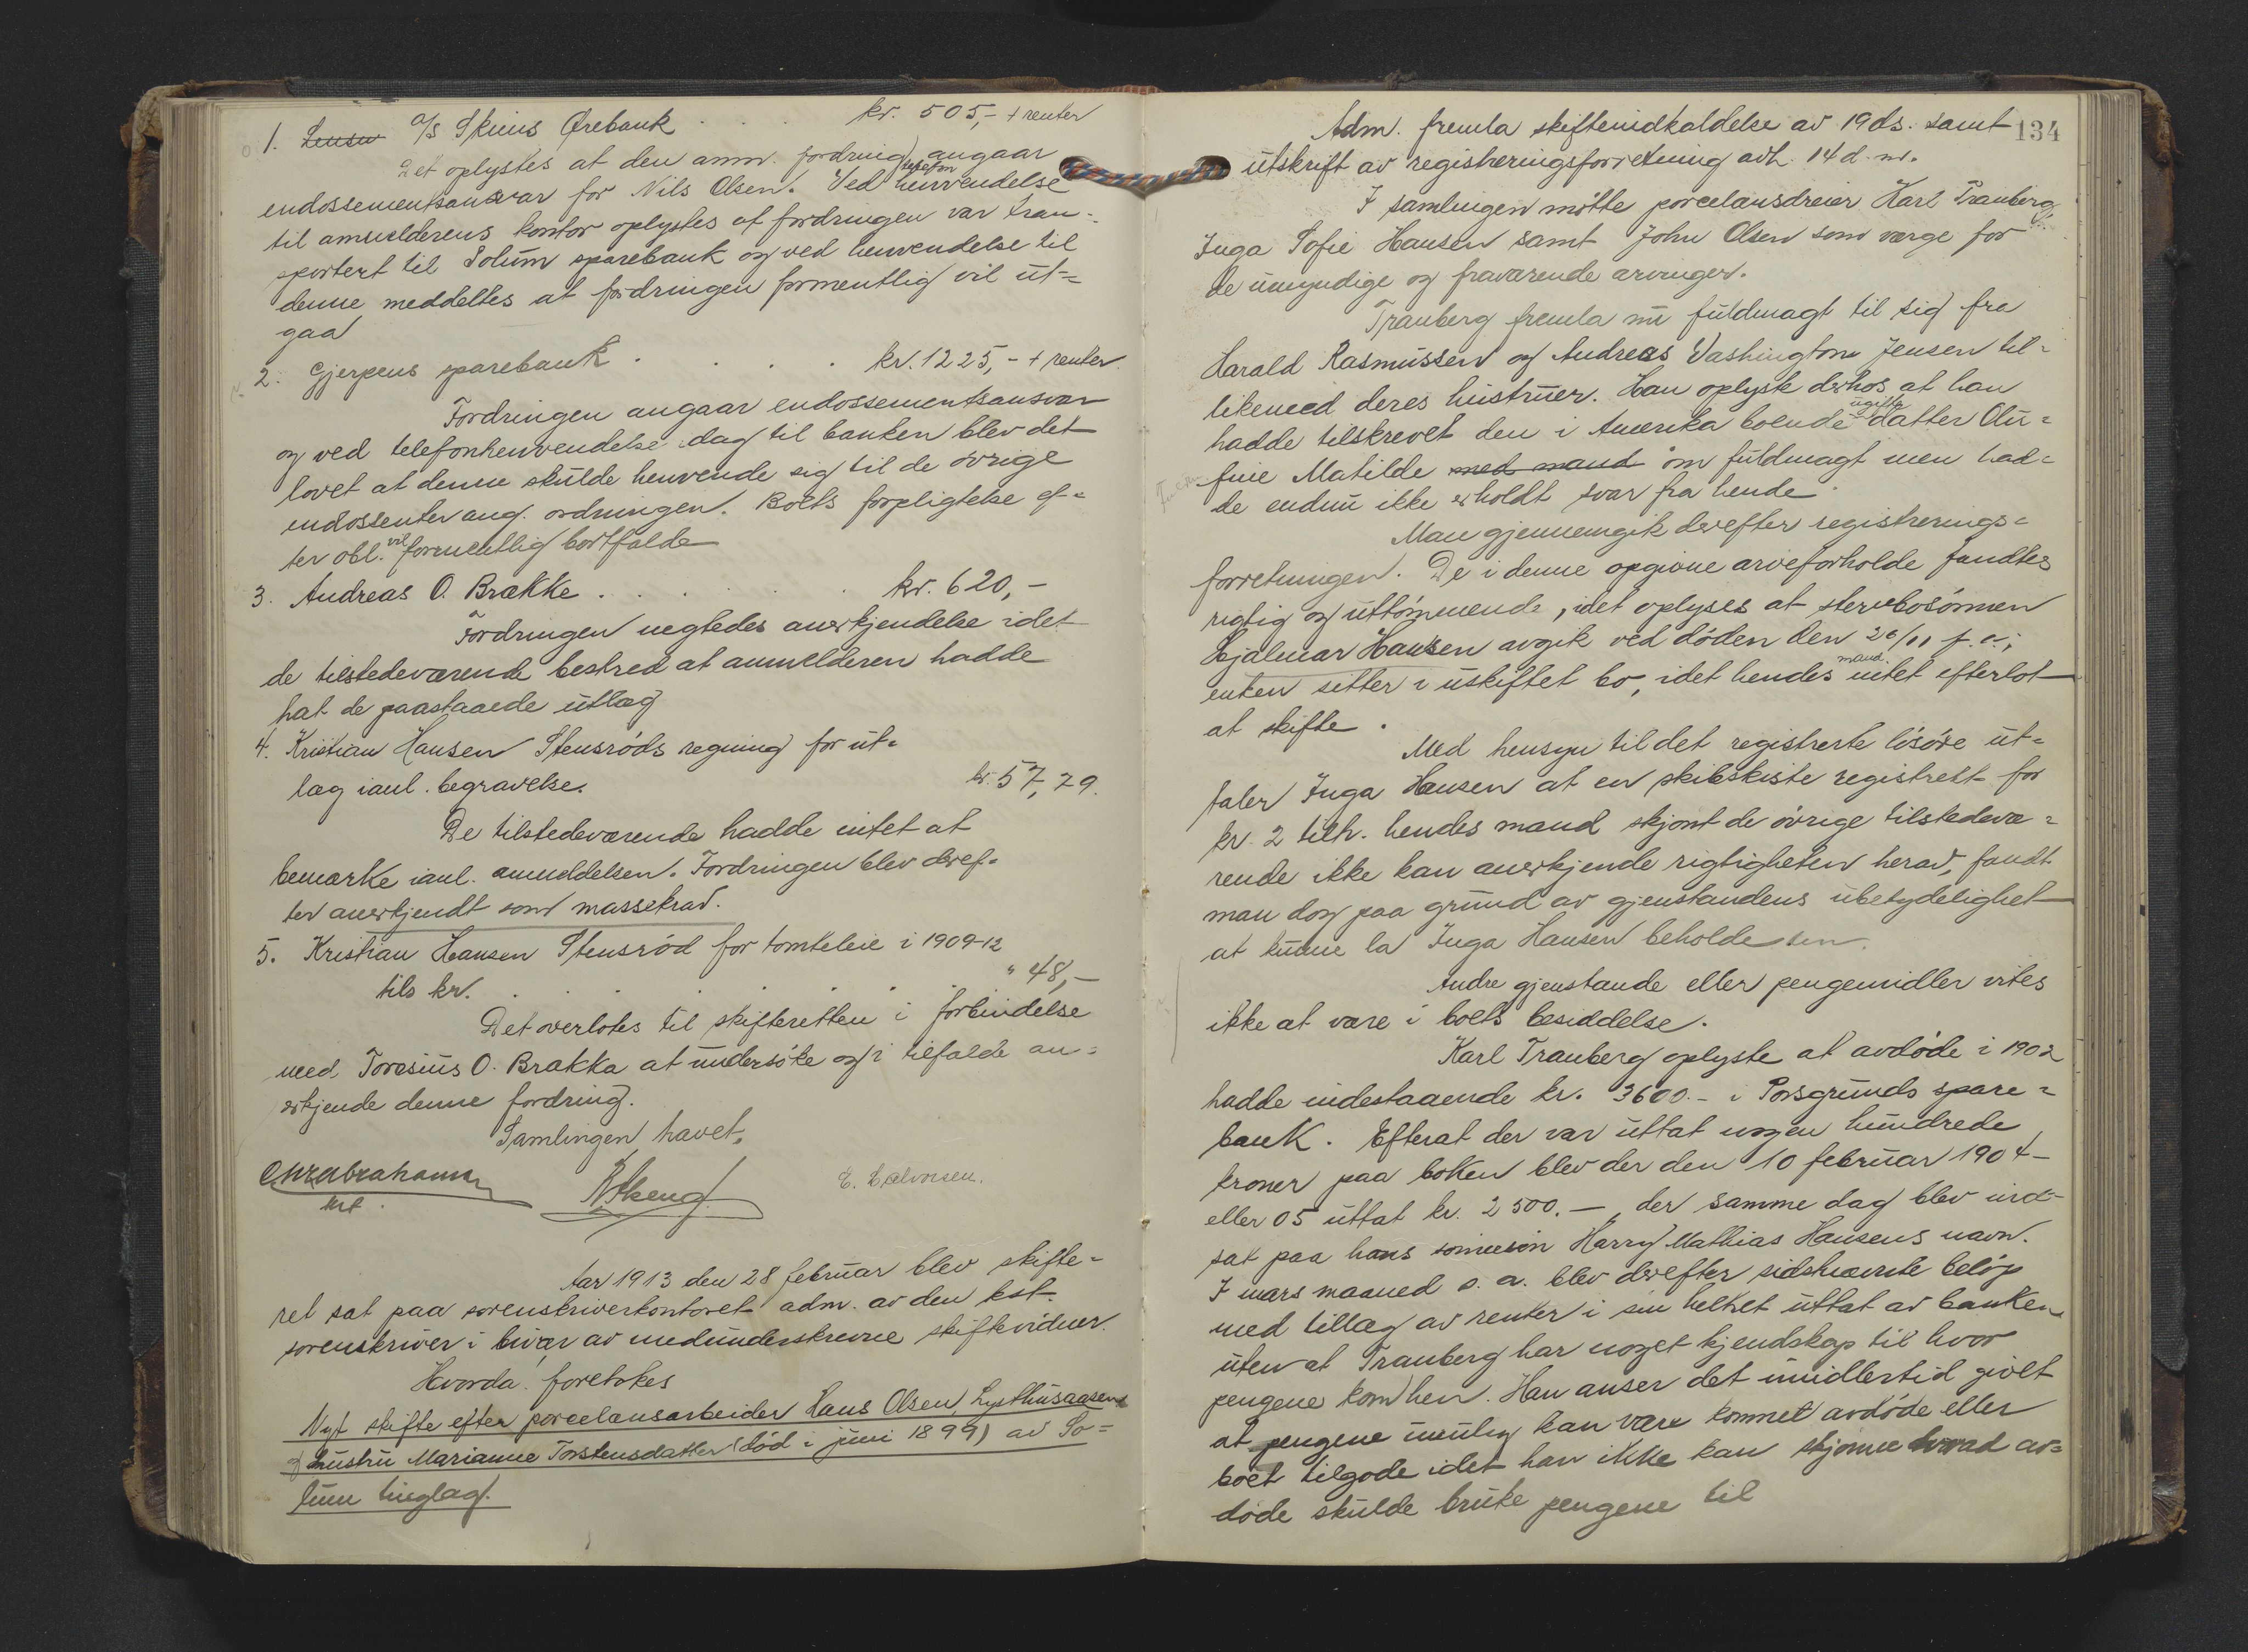 1. Lensm A/S Skiens Ørebank . . . kr. 505,- + renter
Det oplystes at den anm. fordring angaar
endossementsansvar for Nils Olsen. Ved telefon henvendelse
til anmelderens kontor oplystes at fordringen var tran-
sportert til Solum sparebank og ved henvendelse til
denne meddeltes at fordringen formentlig vil ut-
gaa
2. Gjerpens sparebank . . . . kr. 1225,- + renter
Fordringen angaar endossementsansvar
og ved telefonhenvendelse idag til banken blev det
lovet at denne skulde henvende sig til de øvrige
endossenter ang. ordningen. Boets forpligtelse ef-
ter obl. vil formentlig bortfalde
3. Andreas O. Brakke . . . . . kr. 620,-
Fordringen negtedes anerkjendelse idet
de tilstedeværende bestred at anmelderen hadde
hat de paastaaede utlæg
4. Kristian Hansen Stensrøds regning for ut-
læg ianl. begravelse. kr. 57,29.
De tilstedeværende hadde intet at
bemærke ianl. anmeldelsen. Fordringen blev deref-
ter anerkjendt som massekrav.
5. Kristian Hansen Stensrød for tomteleie i 1909-12
tils kr. . . . . . . " 48,-
Det overlotes til skifteretten i forbindelse
med Toresius O. Brakka at undersøke og i tilfælde an-
erkjende denne fordring.
Samlingen hævet.
Chr Abrahamsen
E. Halvorsen.
Aar 1913 den 28 februar blev skifte-
ret sat paa sorenskriverkontoret adm. av den kst.
sorenskriver i bivær av medunderskrevne skiftevidner.
Hvorda foretokes
Nyt skifte efter porcelænsarbeider Hans Olsen Lysthusaasen
og hustru Marianne Torstensdatter (død i juni 1899) av So-
lum tinglag.
134
Adm. fremla skifteindkaldelse av 19 ds. samt
utskrift av registreringsforretning avh. 14 d. m.
I samlingen møtte porcelænsdreier Karl Tranberg,
Inga Sofie Hansen samt John Olsen som verge for
de umyndige og fraværende arvinger.
Tranberg fremla nu fuldmagt til sig fra
Harald Rasmussen og Andreas Vashington Jensen til-
likemed deres hustruer. Han oplyste derhos at han
hadde tilskrevet den i Amerika boende ugifte datter Olu-
fine Matilde med mand om fuldmagt men had-
de endnu ikke erholdt svar fra hende.
Man gjennemgik derefter registrerings-
forretningen. De i denne opgivne arveforholde fandtes
rigtig og uttømmende, idet oplyses at stervbosønnen
Hjalmar Hansen avgik ved døden den 26/11 f. a.;
enken sitter i uskiftet bo, idet hendes mand intet efterlot
at skifte.
Med hensyn til det registrerte løsøre ut-
taler Inga Hansen at en skibskiste registrert for
kr. 2 tilh. hendes mand skjønt de øvrige tilstedevæ-
rende ikke kan anerkjende rigtigheten herav, fandt
man dog paa grund av gjenstandens ubetydelighet
at kunne la Inga Hansen beholde den.
Andre gjenstande eller pengemidler vites
ikke at være i boets besiddelse.
Karl Tranberg oplyste at avdøde i 1902
hadde indestaaende kr. 3600.- i Porsgrunds spare-
bank. Efterat der var uttat nogen hundrede
kroner paa boken blev der den 10 februar 1904
eller 05 uttat kr. 2500.-, der samme dag blev ind-
sat paa hans sønnesøn Harry Mathias Hansens navn.
I mars maaned s. a. blev derefter sidstnævnte beløp
med tillæg av renter i sin helhet uttat av banken
uten at Tranberg har noget kjendskap til hvor
pengene kom hen. Han anser det imidlertid givet
at pengene umulig kan være kommet avdøde eller
boet tilgode idet han ikke kan skjønne hvad av-
døde skulde bruke pengene til